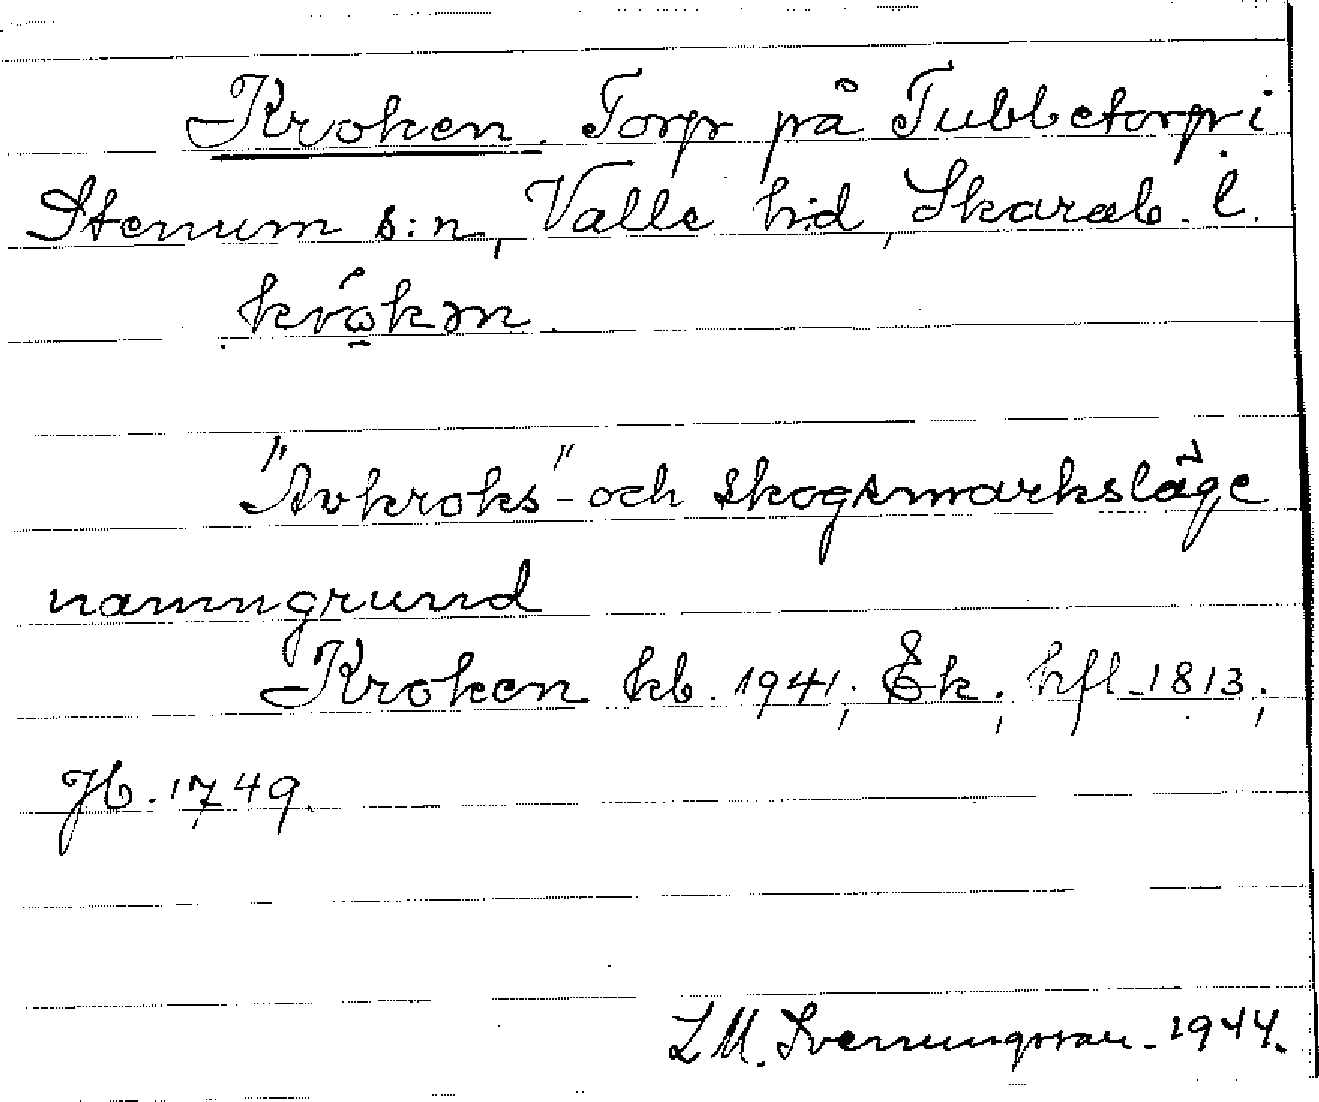 Kroken. Torp på Tubbetorp i
Stenum s:n, Valle hd, Skarab. l.
"Avkroks"- och skogsmarksläge
namngrund
Kroken kb. 1941; Ek.; hfl 1813;
Jb. 1749.
L M. Svenungsson 1944.